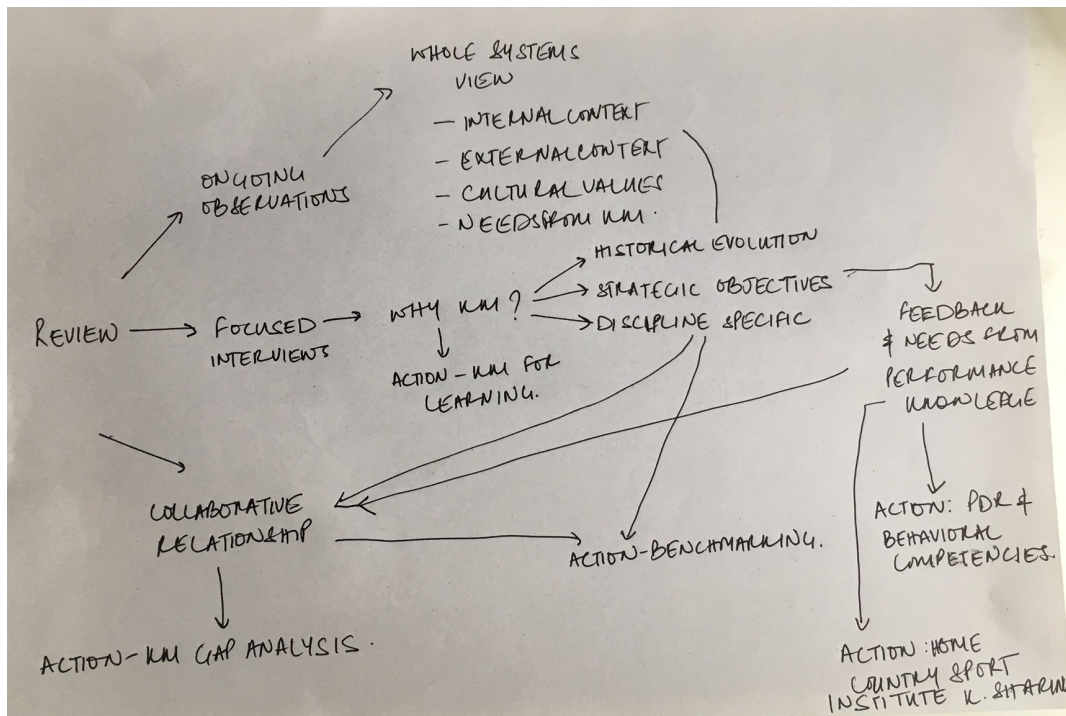 WHOLE SYSTEMS
VIEW
- INTERNAL CONTEXT
- EXTERNAL CONTEXT
- CULTURAL VALUES
- NEEDS FROM KM.
ONGOING
OBSERVATIONS
REVIEW
FOCUSED
INTERVIEWS
WHY KM?
ACTION - KM FOR
LEARNING.
HISTORICAL EVOLUTION
STRATEGIC OBJECTIVES
DISCIPLINE SPECIFIC
FEEDBACK
& NEEDS FROM
PERFORMANCE
KNOWLEDGE
COLLABORATIVE
RELATIONSHIP
ACTION-BENCHMARKING.
ACTION: PDR &
BEHAVIORAL
COMPETENCIES.
ACTION-KM GAP ANALYSIS.
ACTION: HOME
COUNTRY SPORT
INSTITUTE K. SHARIN